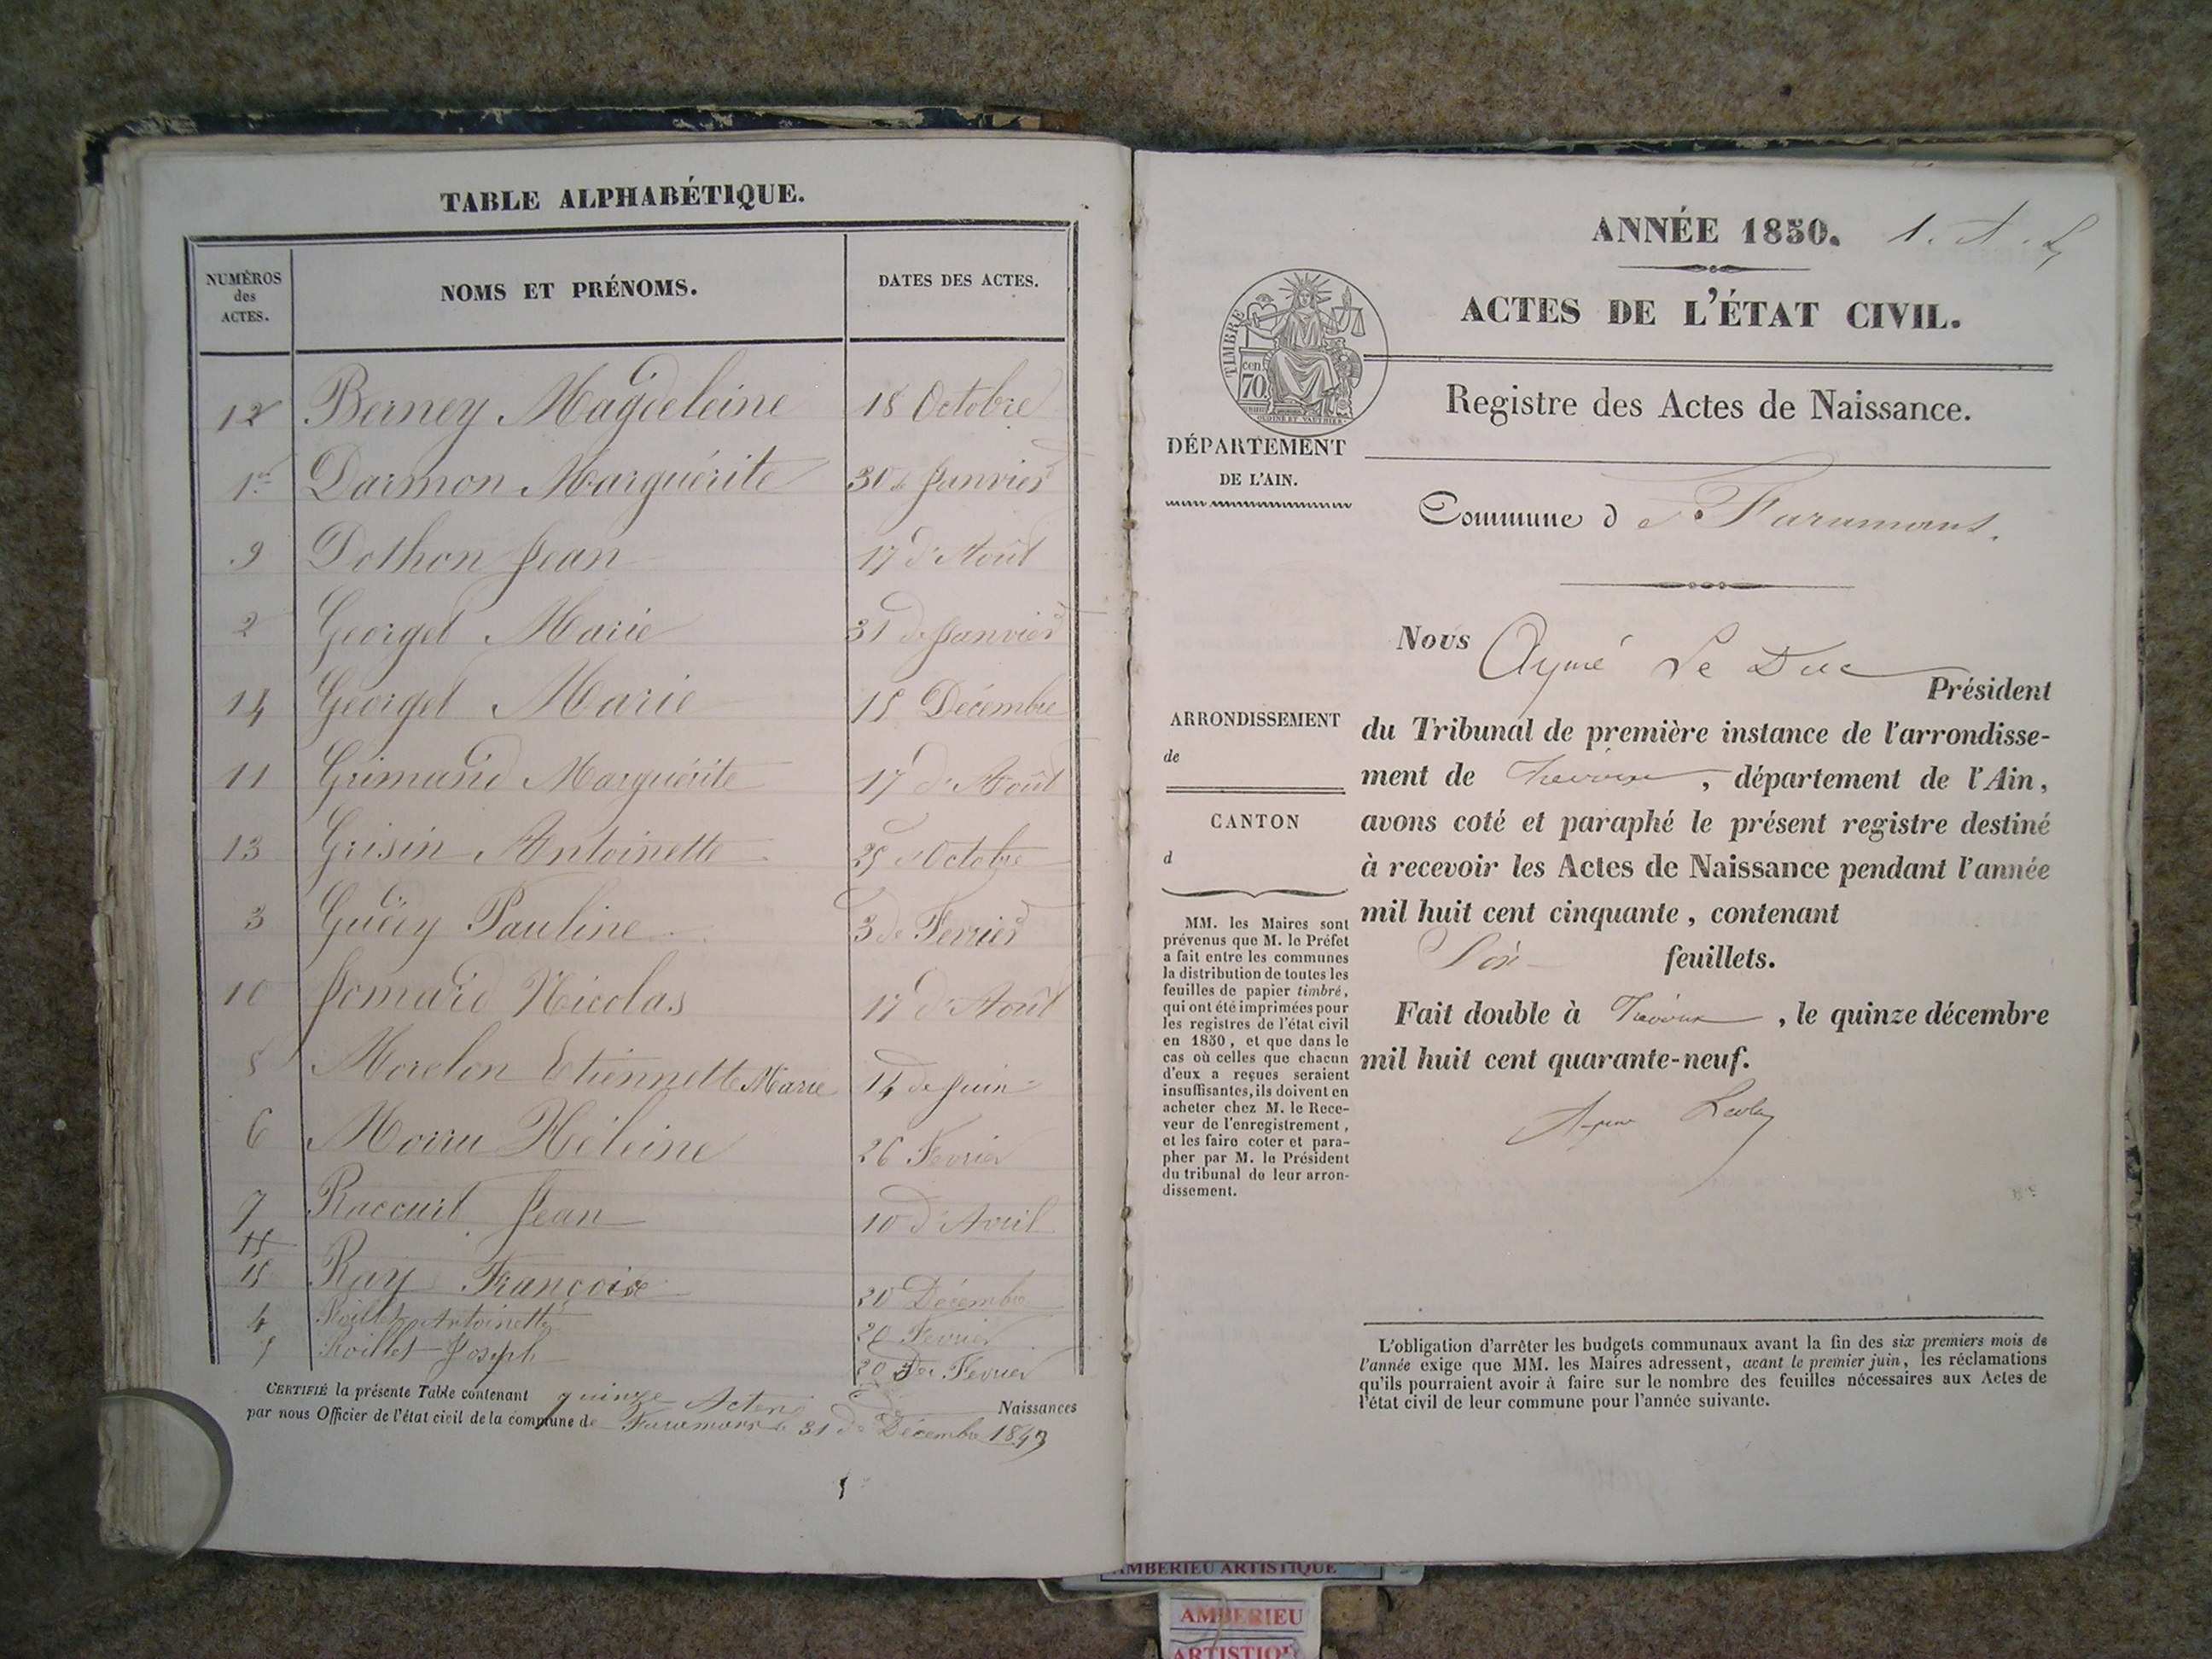 TABLE ALPHABÉTIQUE.
NUMÉROS des ACTES. NOMS ET PRÉNOMS. DATES DES ACTES.
12 Berney Magdeleine 18 Octobre
1er Darmon Marguérite 30 de Janvier
9 Dothon Jean 17 d'Août
2 Georget Marie 31 de Janvier
14 Georget Marie 15 Décembre
11 Grimand Marguérite 17 d'Août
13 Grisin Antoinette 25 d'Octobre
3 Guéry Pauline 3 de Fevrier
10 Jomard Nicolas 17 d'Août
8 Morelon Etiennette Marie 14 de Juin
6 Héleine 26 Fevrier
7 Raccurt Jean 10 d'Avril
15
15 Ray Françoise 20 Décembre
4 Antoinette 20 Fevrier
5 Joseph 20 de Fevrier
CERTIFIÉ la présente Table contenant quinze Actes de Naissances
par nous Officier de l'état civil de la commune de Faramans le 31 de Décembre 1849
ANNÉE 1850. 1.
ACTES DE L'ÉTAT CIVIL.
TIMBRE
70 cen
Registre des Actes de Naissance.
DÉPARTEMENT
DE L'AIN.
Commune de Faramans.
Nous Aymé Le Duc Président
du Tribunal de première instance de l'arrondisse-
ment de Trévoux, département de l'Ain,
avons coté et paraphé le présent registre destiné
à recevoir les Actes de Naissance pendant l'année
mil huit cent cinquante, contenant
Six feuillets.
Fait double à Trévoux, le quinze décembre
mil huit cent quarante-neuf.
ARRONDISSEMENT
de
CANTON
d
MM. les Maires sont
prévenus que M. le Préfet
a fait entre les communes
la distribution de toutes les
feuilles de papier timbré,
qui ont été imprimées pour
les registres de l'état civil
en 1850, et que dans le
cas où celles que chacun
d'eux a reçues seraient
insuffisantes, ils doivent en
acheter chez M. le Rece-
veur de l'enregistrement,
et les faire coter et para-
pher par M. le Président
du tribunal de leur arron-
dissement.
L'obligation d'arrêter les budgets communaux avant la fin des six premiers mois de
l'année exige que MM. les Maires adressent, avant le premier juin, les réclamations
qu'ils pourraient avoir à faire sur le nombre des feuilles nécessaires aux Actes de
l'état civil de leur commune pour l'année suivante.
AMBERIEU ARTISTIQUE
AMBERIEU
ARTISTIQUE